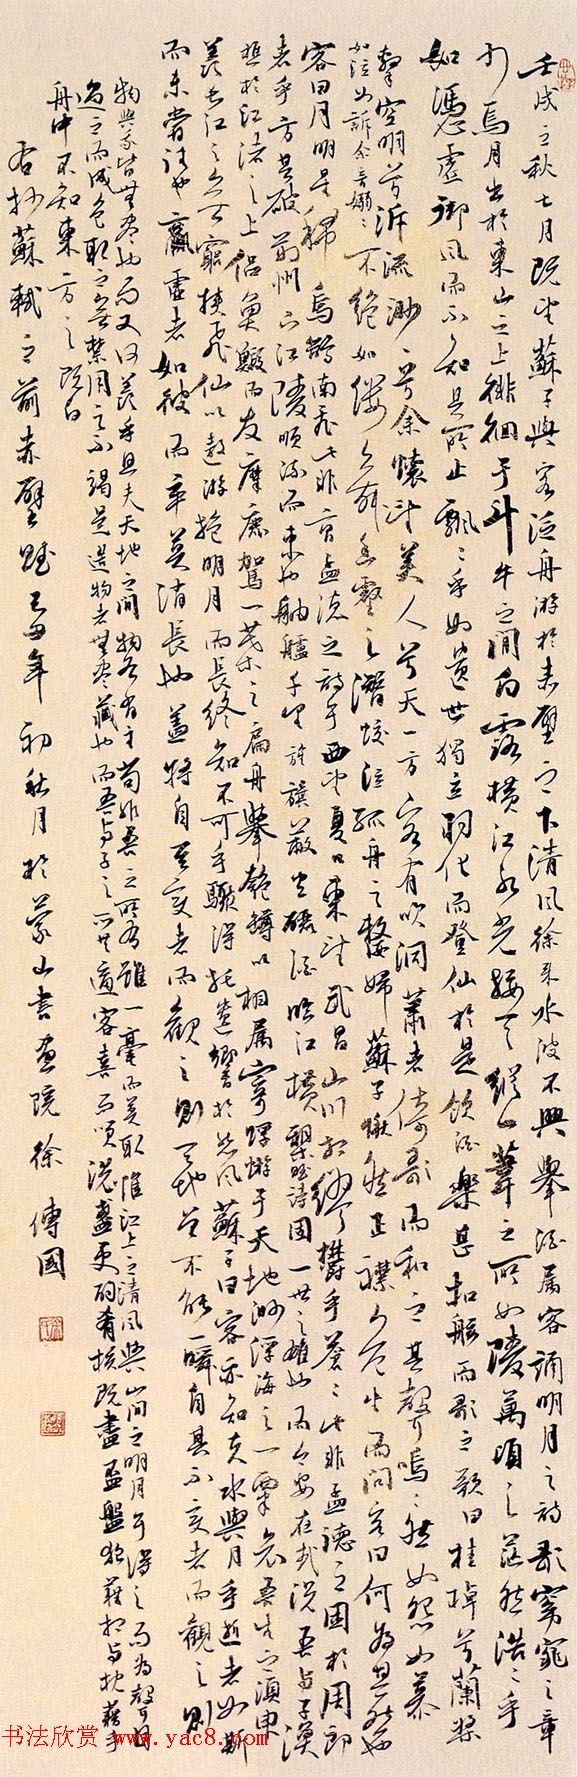 壬戌之秋七月既望蘇子與客泛舟游於赤壁之下清風徐來水波不興舉酒屬客誦明月之詩歌窈窕之章
少焉月出於東山之上徘徊于斗牛之間白露橫江水光接天縱一葦之所如陵萬頃之茫然浩々乎
如憑虛御風而不知其所止飄々乎如遺世獨立羽化而登仙於是飲酒樂甚扣舷而歌之歌曰桂棹兮蘭槳
擊空明兮泝流渺々兮余懷美人兮天一方客有吹洞蕭者倚歌而和之其聲嗚々然如怨如慕
如泣如訴余音嫋々不絕如縷舞幽壑之潛蛟泣孤舟之嫠婦蘇子愀然正襟危坐而問客曰何為其然也
客曰月明星稀烏鵲南飛此非曹孟德之詩乎西望夏口東望武昌山川相繆鬱乎蒼々此非孟德之困於周郎
者乎方其破荊州下江陵順流而東也舳艫千里旌旗蔽空釃酒臨江橫槊賦詩固一世之雄也而今安在哉況吾與子漁
樵於江渚之上侶魚蝦而友麋鹿駕一葉之扁舟舉匏樽以相屬寄蜉蝣于天地渺滄海之一粟哀吾生之須臾
羨長江之無窮挾飛仙以遨游抱明月而長終知不可乎驟得托遺響於悲風蘇子曰客亦知夫水與月乎逝者如斯
而未嘗往也贏虛者如彼而卒莫消長也蓋將自其變者而觀之則天地曾不能一瞬自其不變者而觀之則
物與我皆無盡也而又何羨乎且夫天地之間物各有主苟非吾之所有雖一毫而莫取惟江上之清風與山間之明月耳得之而為聲目
遇之而成色取之無禁用之不竭是造物者無盡藏也而吾與子之所共適客喜而笑洗盞更酌肴核既盡盃盤狼藉相與枕藉乎
舟中不知東方之既白
右抄蘇軾之前赤壁賦己丑年初秋月於蒙山書畫院徐傳國
书法欣赏 www.yac8.com